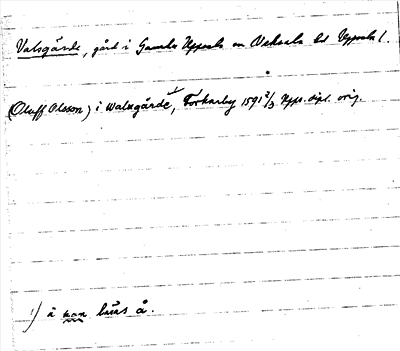 Valsgärde, gård i Gamla Uppsala sn Vaksala hd Uppsala l.
(Oluff Olsson) i Walsgärde¹⁾, Forkarby 1591 2/3 Upps. dipl. orig.
¹⁾ ä kan läsas å.